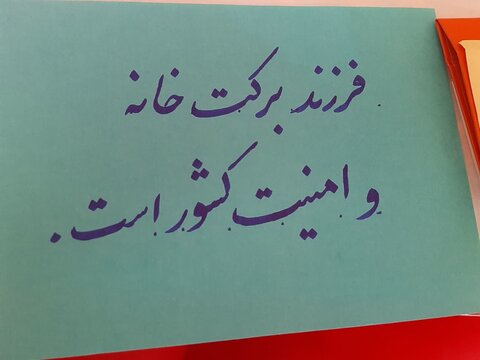 فرزند برکت خانه
و امنیت کشور است.